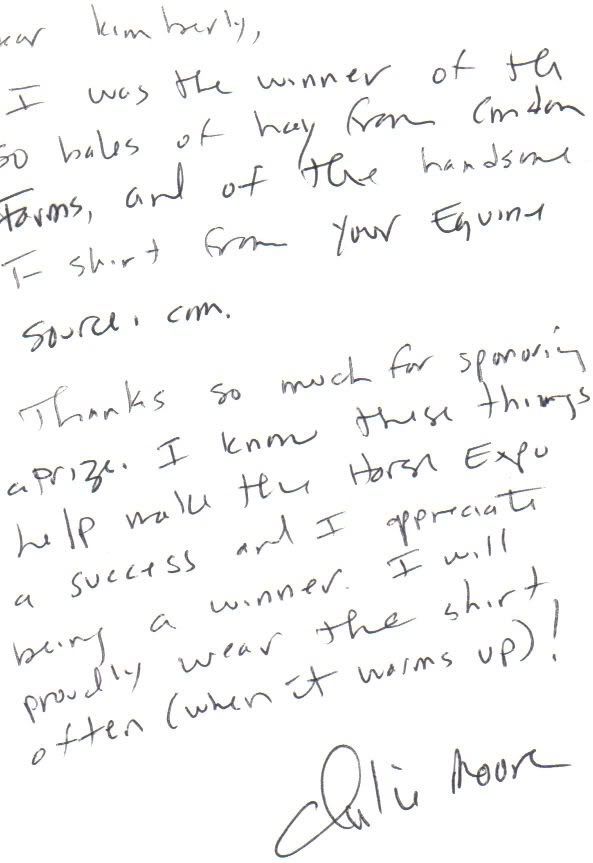 ear Kimberly,
I was the winner of th
50 bales of hay from Condon
Farms, and of the handsome
T-shirt from Your Equine
Source. com.
Thanks so much for sponoring
a prize. I know these things
help make the Horse Expo
a success and I appreciate
being a winner. I will
proudly wear the shirt
often (when it warms up)!
Julie Moore